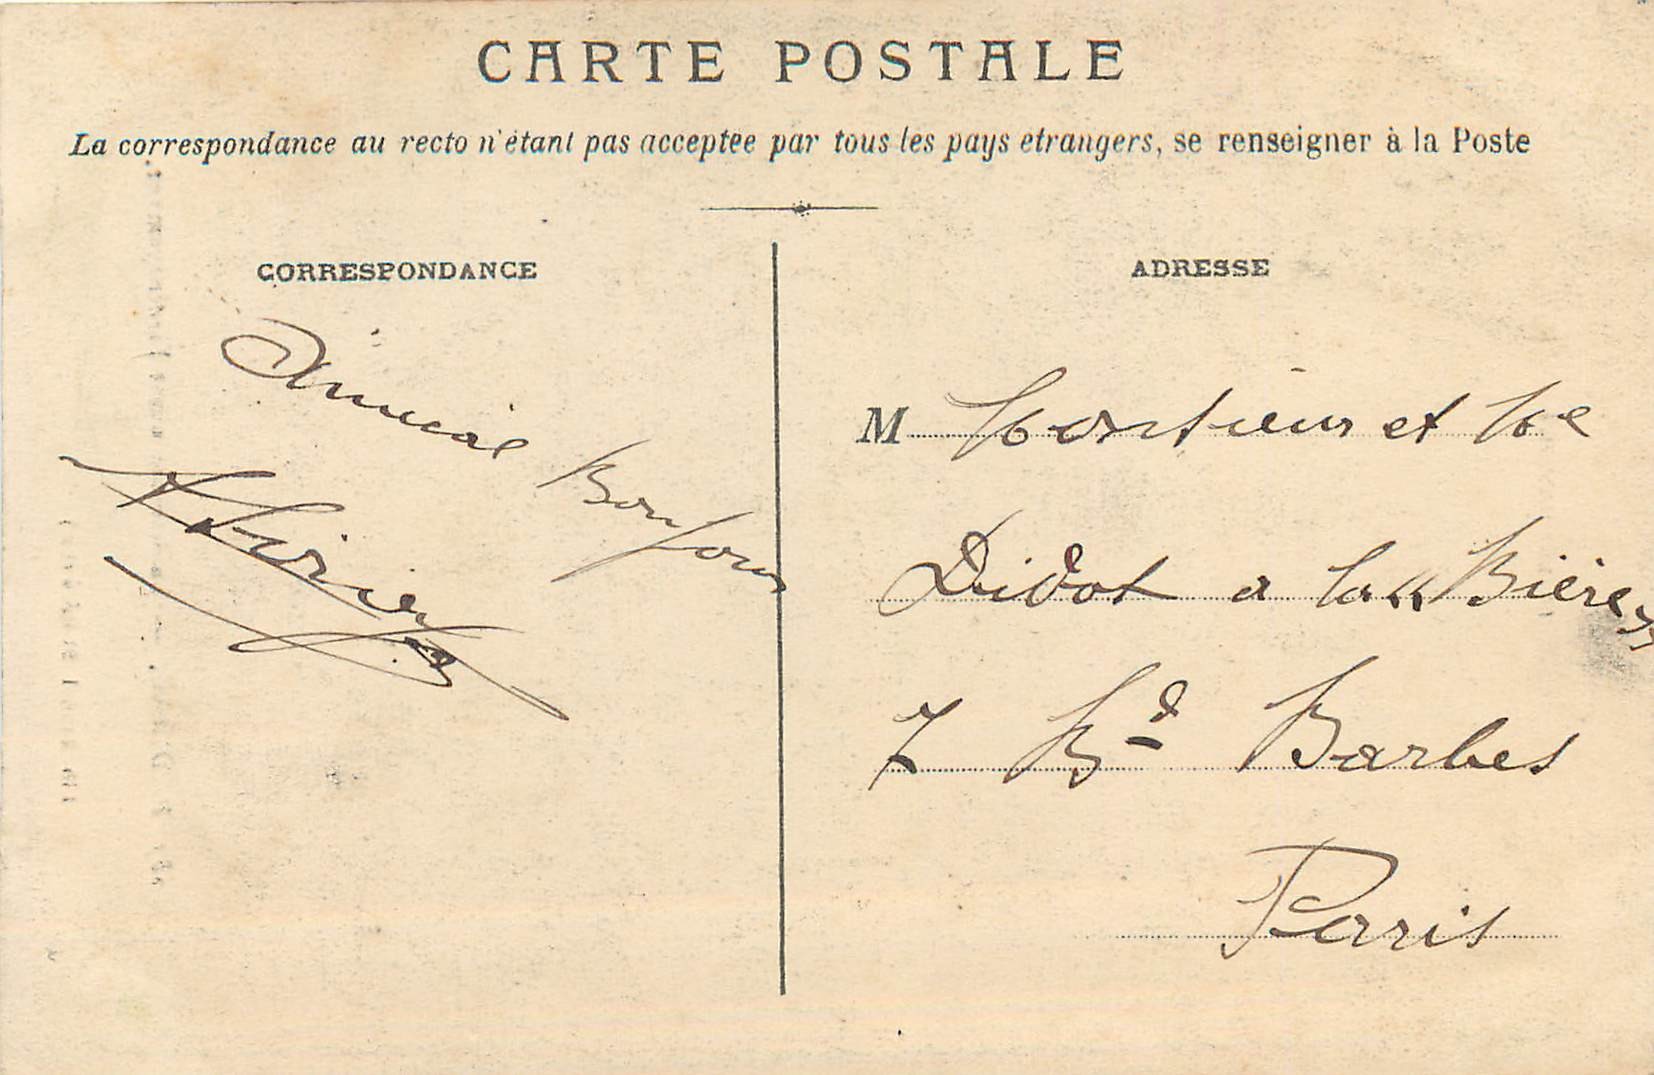 CARTE POSTALE
La correspondance au recto n'étant pas acceptée par tous les pays etrangers, se renseigner à la Poste
CORRESPONDANCE
ADRESSE
Amical Bonjour
M Monsieur et Me
Didot a la "Bière"
7 Bd Barbes
Paris